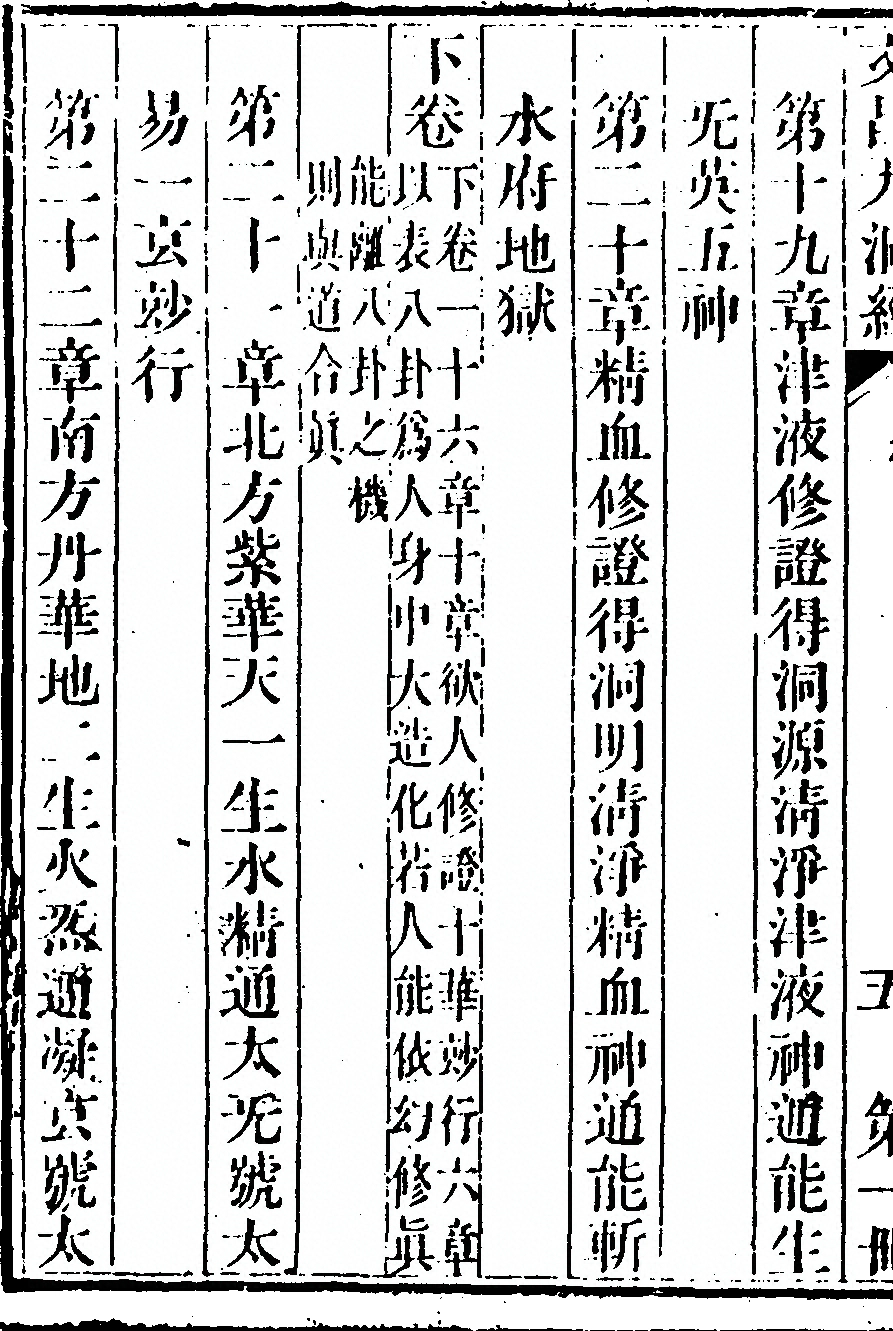 文昌大洞經 五 第一冊
第十九章津液修證得洞源淸淨津液神通能生
旡英五神
第二十章精血修證得洞明淸淨精血神通能斬
水府地獄
下卷
下卷一十六章十章欲人修證十華玅行六章
以表八卦爲人身中大造化若人能依幻修眞
能離八卦之機
則與道合眞
第二十一章北方紫華天一生水精通太旡號太
易一玄玅行
第二十二章南方丹華地二生火炁通凝玄號太